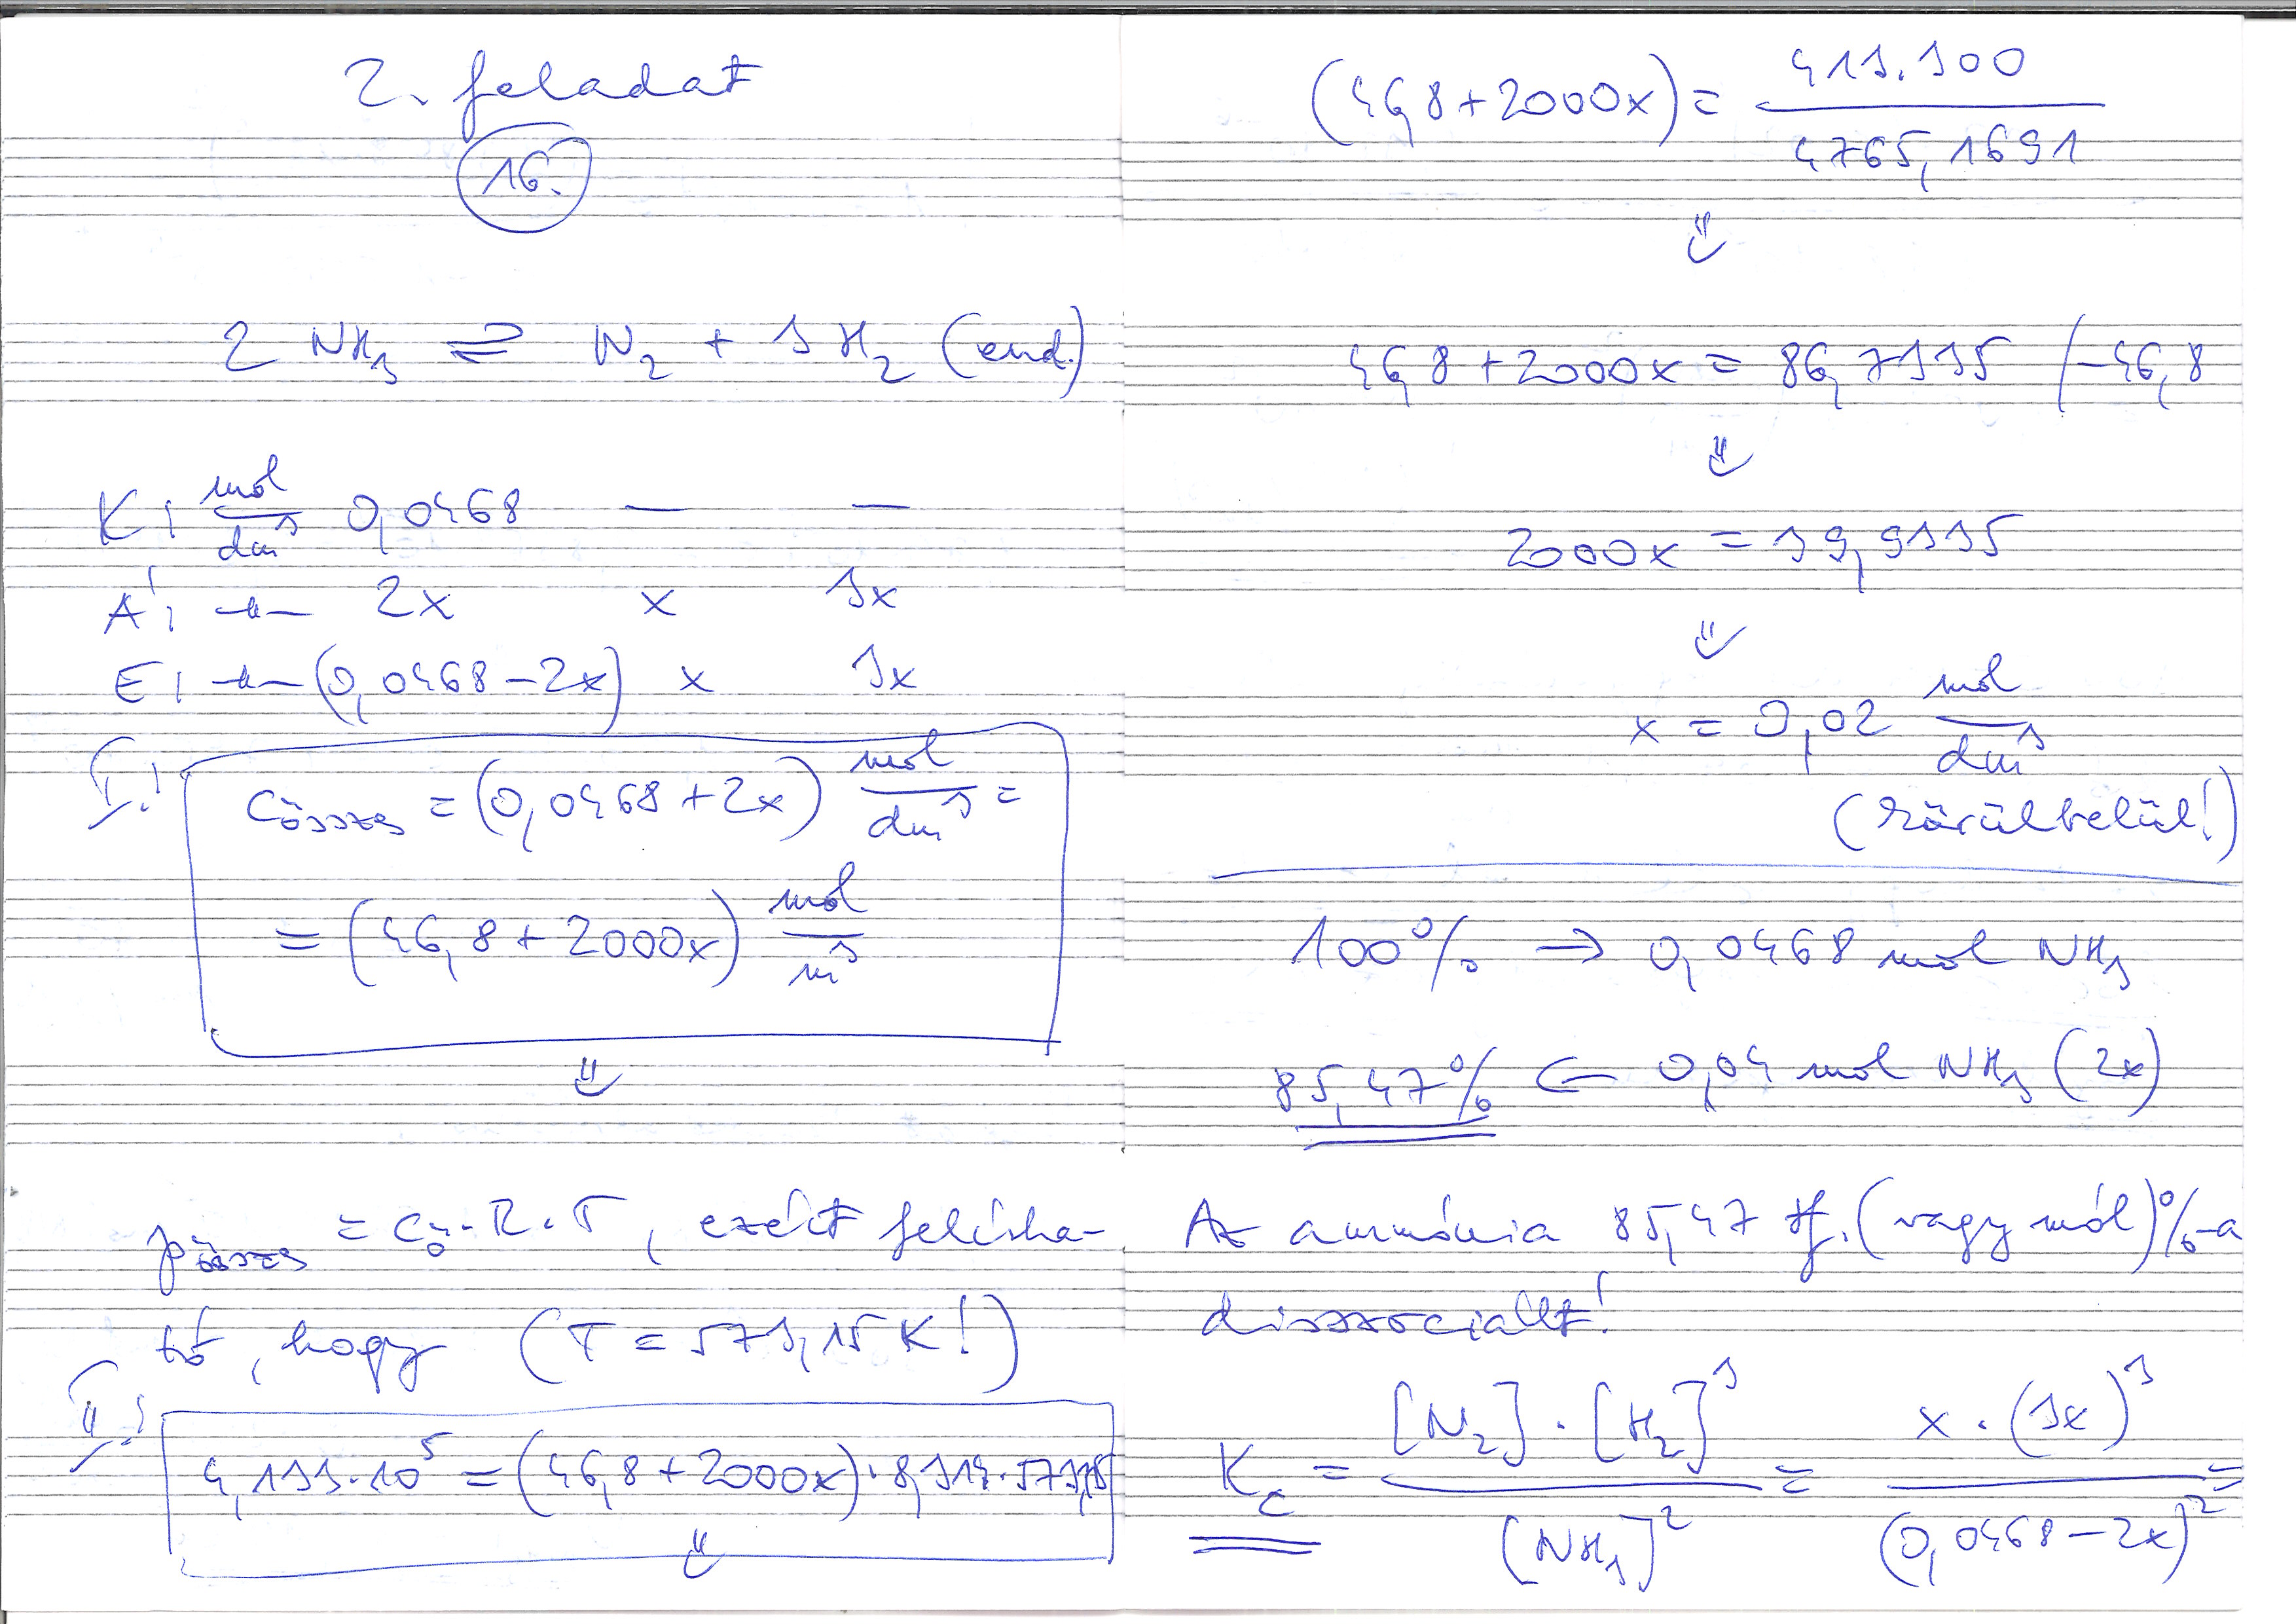 2. feladat
16.
2 NH₃ ⇌ N₂ + 3 H₂ (end.)
K: mol/dm³ 0,0468 — —
Á: -"- 2x x 3x
E: -"- (0,0468-2x) x 3x
I.!
Cössz = (0,0468+2x) mol/dm³ =
= (46,8+2000x) mol/m³
⇓
pössz = cö·R·T, ezért felírha-
tó, hogy (T = 573,15 K!)
II.!
4,133·10⁵ = (46,8+2000x)·8,314·573,15
⇓
(46,8+2000x) = 413.300/4765,1691
⇓
46,8+2000x = 86,7335 /-46,8
⇓
2000x = 39,9335
⇓
x = 0,02 mol/dm³
(körülbelül!)
100% → 0,0468 mol NH₃
85,47% ← 0,04 mol NH₃ (2x)
Az ammónia 85,47 tf. (vagy mól)%-a
disszociált!
Kc = [N₂]·[H₂]³/[NH₃]² = x·(3x)³/(0,0468-2x)² =